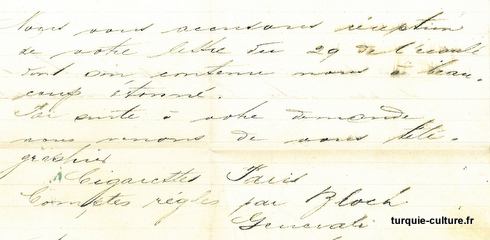 Nous vous accusons réception
de votre lettre du 29 de l'écoulé
dont le contenu nous a beau-
coup étonné.
Par suite à votre demande
nous venons de vous télé-
graphier
Cigarettes Paris
Comptes réglés par Bloch
Generali
turquie-culture.fr